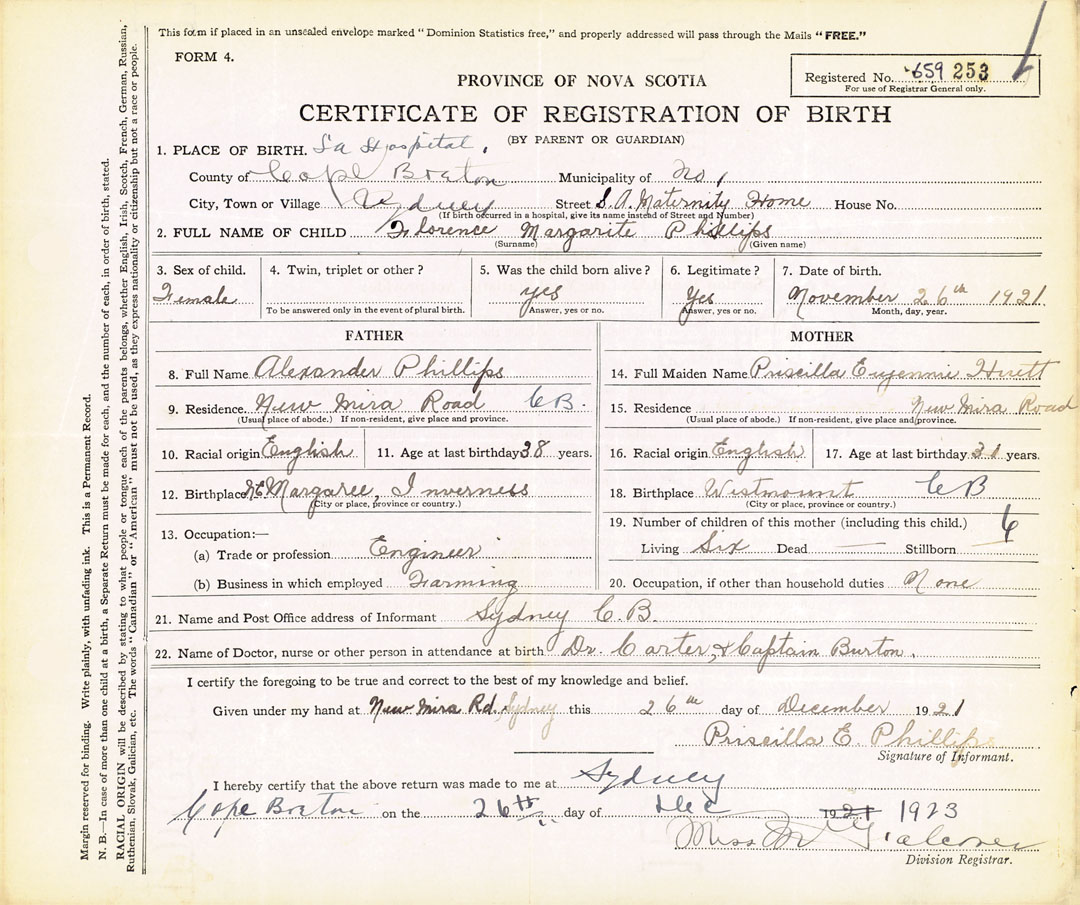 This form if placed in an unsealed envelope marked "Dominion Statistics free," and properly addressed will pass through the Mails "FREE."
FORM 4.
Registered No. 659 253
For use of Registrar General only.
PROVINCE OF NOVA SCOTIA
CERTIFICATE OF REGISTRATION OF BIRTH
(BY PARENT OR GUARDIAN)
1. PLACE OF BIRTH. S a Hospital.
County of Cape Breton Municipality of No 1
City, Town or Village Sydney Street S. A. Maternity Home House No.
(If birth occurred in a hospital, give its name instead of Street and Number)
2. FULL NAME OF CHILD Florence Margarite Phillips
(Surname) (Given name)
3. Sex of child. 4. Twin, triplet or other? 5. Was the child born alive? 6. Legitimate? 7. Date of birth.
Female yes Yes November 26th 1921
To be answered only in the event of plural birth. Answer, yes or no. Answer, yes or no. Month, day, year.
FATHER
8. Full Name Alexander Phillips
9. Residence. New Mira Road C B.
(Usual place of abode.) If non-resident, give place and province.
10. Racial origin English 11. Age at last birthday 38 years.
12. Birthplace N E Margaree, Inverness
(City or place, province or country.)
13. Occupation:—
(a) Trade or profession Engineer
(b) Business in which employed Farming
MOTHER
14. Full Maiden Name Priscilla Eugennie
15. Residence New Mira Road
(Usual place of abode.) If non-resident, give place and province.
16. Racial origin English 17. Age at last birthday 31 years.
18. Birthplace Westmount C B
(City or place, province or country.)
19. Number of children of this mother (including this child.) 6
Living Six Dead — Stillborn —
20. Occupation, if other than household duties None
21. Name and Post Office address of Informant Sydney C. B.
22. Name of Doctor, nurse or other person in attendance at birth Dr. Carter, & Captain Burton.
I certify the foregoing to be true and correct to the best of my knowledge and belief.
Given under my hand at New Mira Rd. Sydney this 26th day of December 1921
Priscilla E. Phillips
Signature of Informant.
I hereby certify that the above return was made to me at Sydney
Cape Breton on the 26th day of Dec 1921 1923
Miss
Division Registrar.
Margin reserved for binding. Write plainly, with unfading ink. This is a Permanent Record.
N. B.—In case of more than one child at a birth, a Separate Return must be made for each, and the number of each, in order of birth, stated.
RACIAL ORIGIN will be described by stating to what people or tongue each of the parents belongs, whether English, Irish, Scotch, French, German, Russian,
Ruthenian, Slovak, Galician, etc. The words "Canadian" or "American" must not be used, as they express nationality or citizenship but not a race or people.